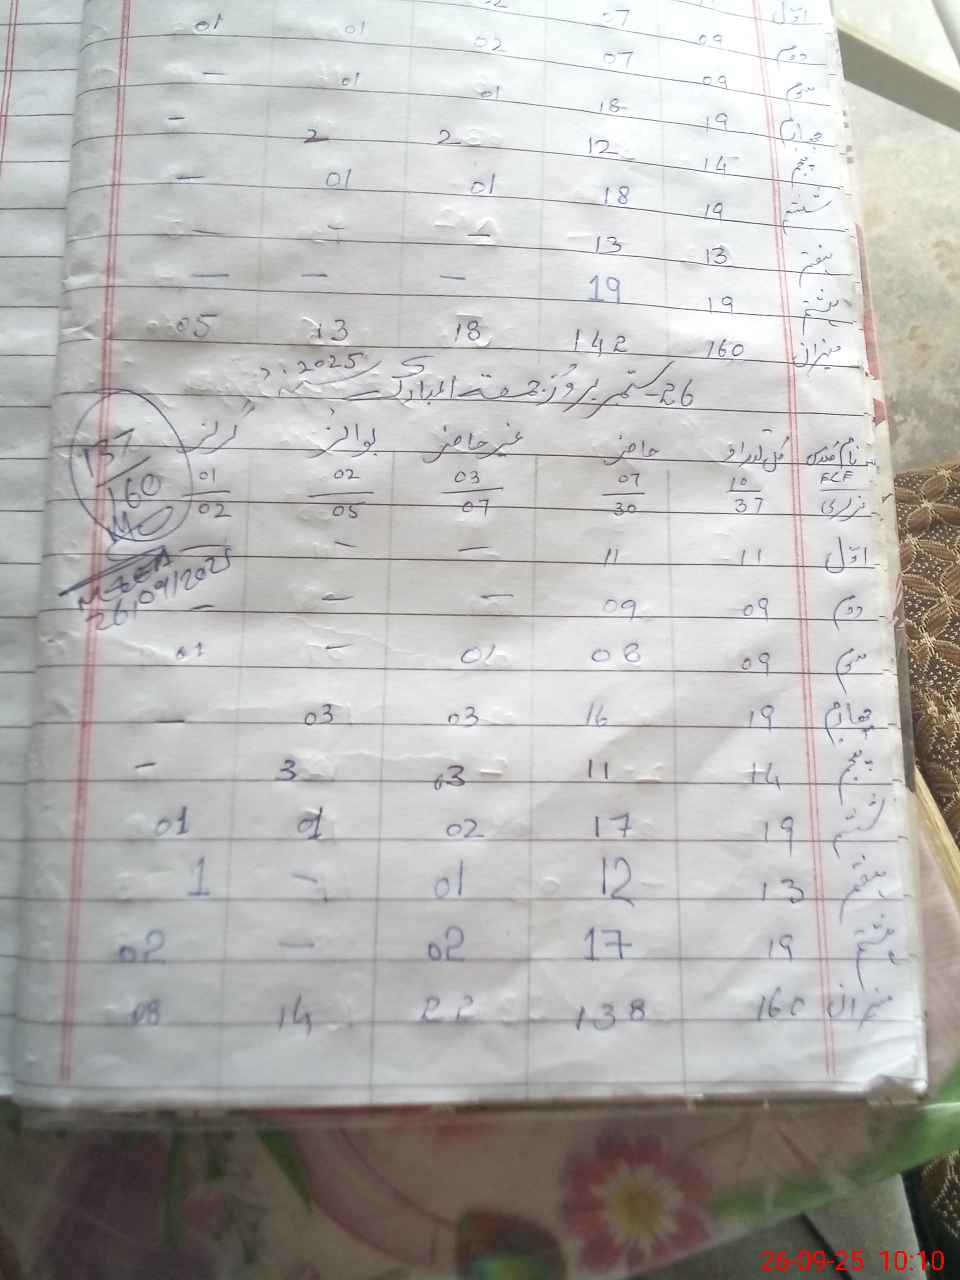 اوّل 07 02
دوم 09 07 02 01 01
سوم 09 18 01 01 —
چہارم 19 12 2 2 —
پنجم 14 18 01 01 —
ششم 19 13 — — —
ہفتم 13 19 — — —
ہشتم 19
میزان 160 142 18 13 05
26 ستمبر بروز جمعۃ المبارک 2025
نام کلاس کل تعداد حاضر غیر حاضر بوائز گرلز
ECE 10 07 03 02 01
نرسری 37 30 07 05 02
137
160
26/09/2025
اوّل 11 11 — — —
دوم 09 09 — — —
سوم 09 08 01 — 01
چہارم 19 16 03 03 —
پنجم 14 11 03 3 —
ششم 19 17 02 01 01
ہفتم 13 12 01 — 1
ہشتم 19 17 02 — 02
میزان 160 138 22 14 08
26-09-25 10:10